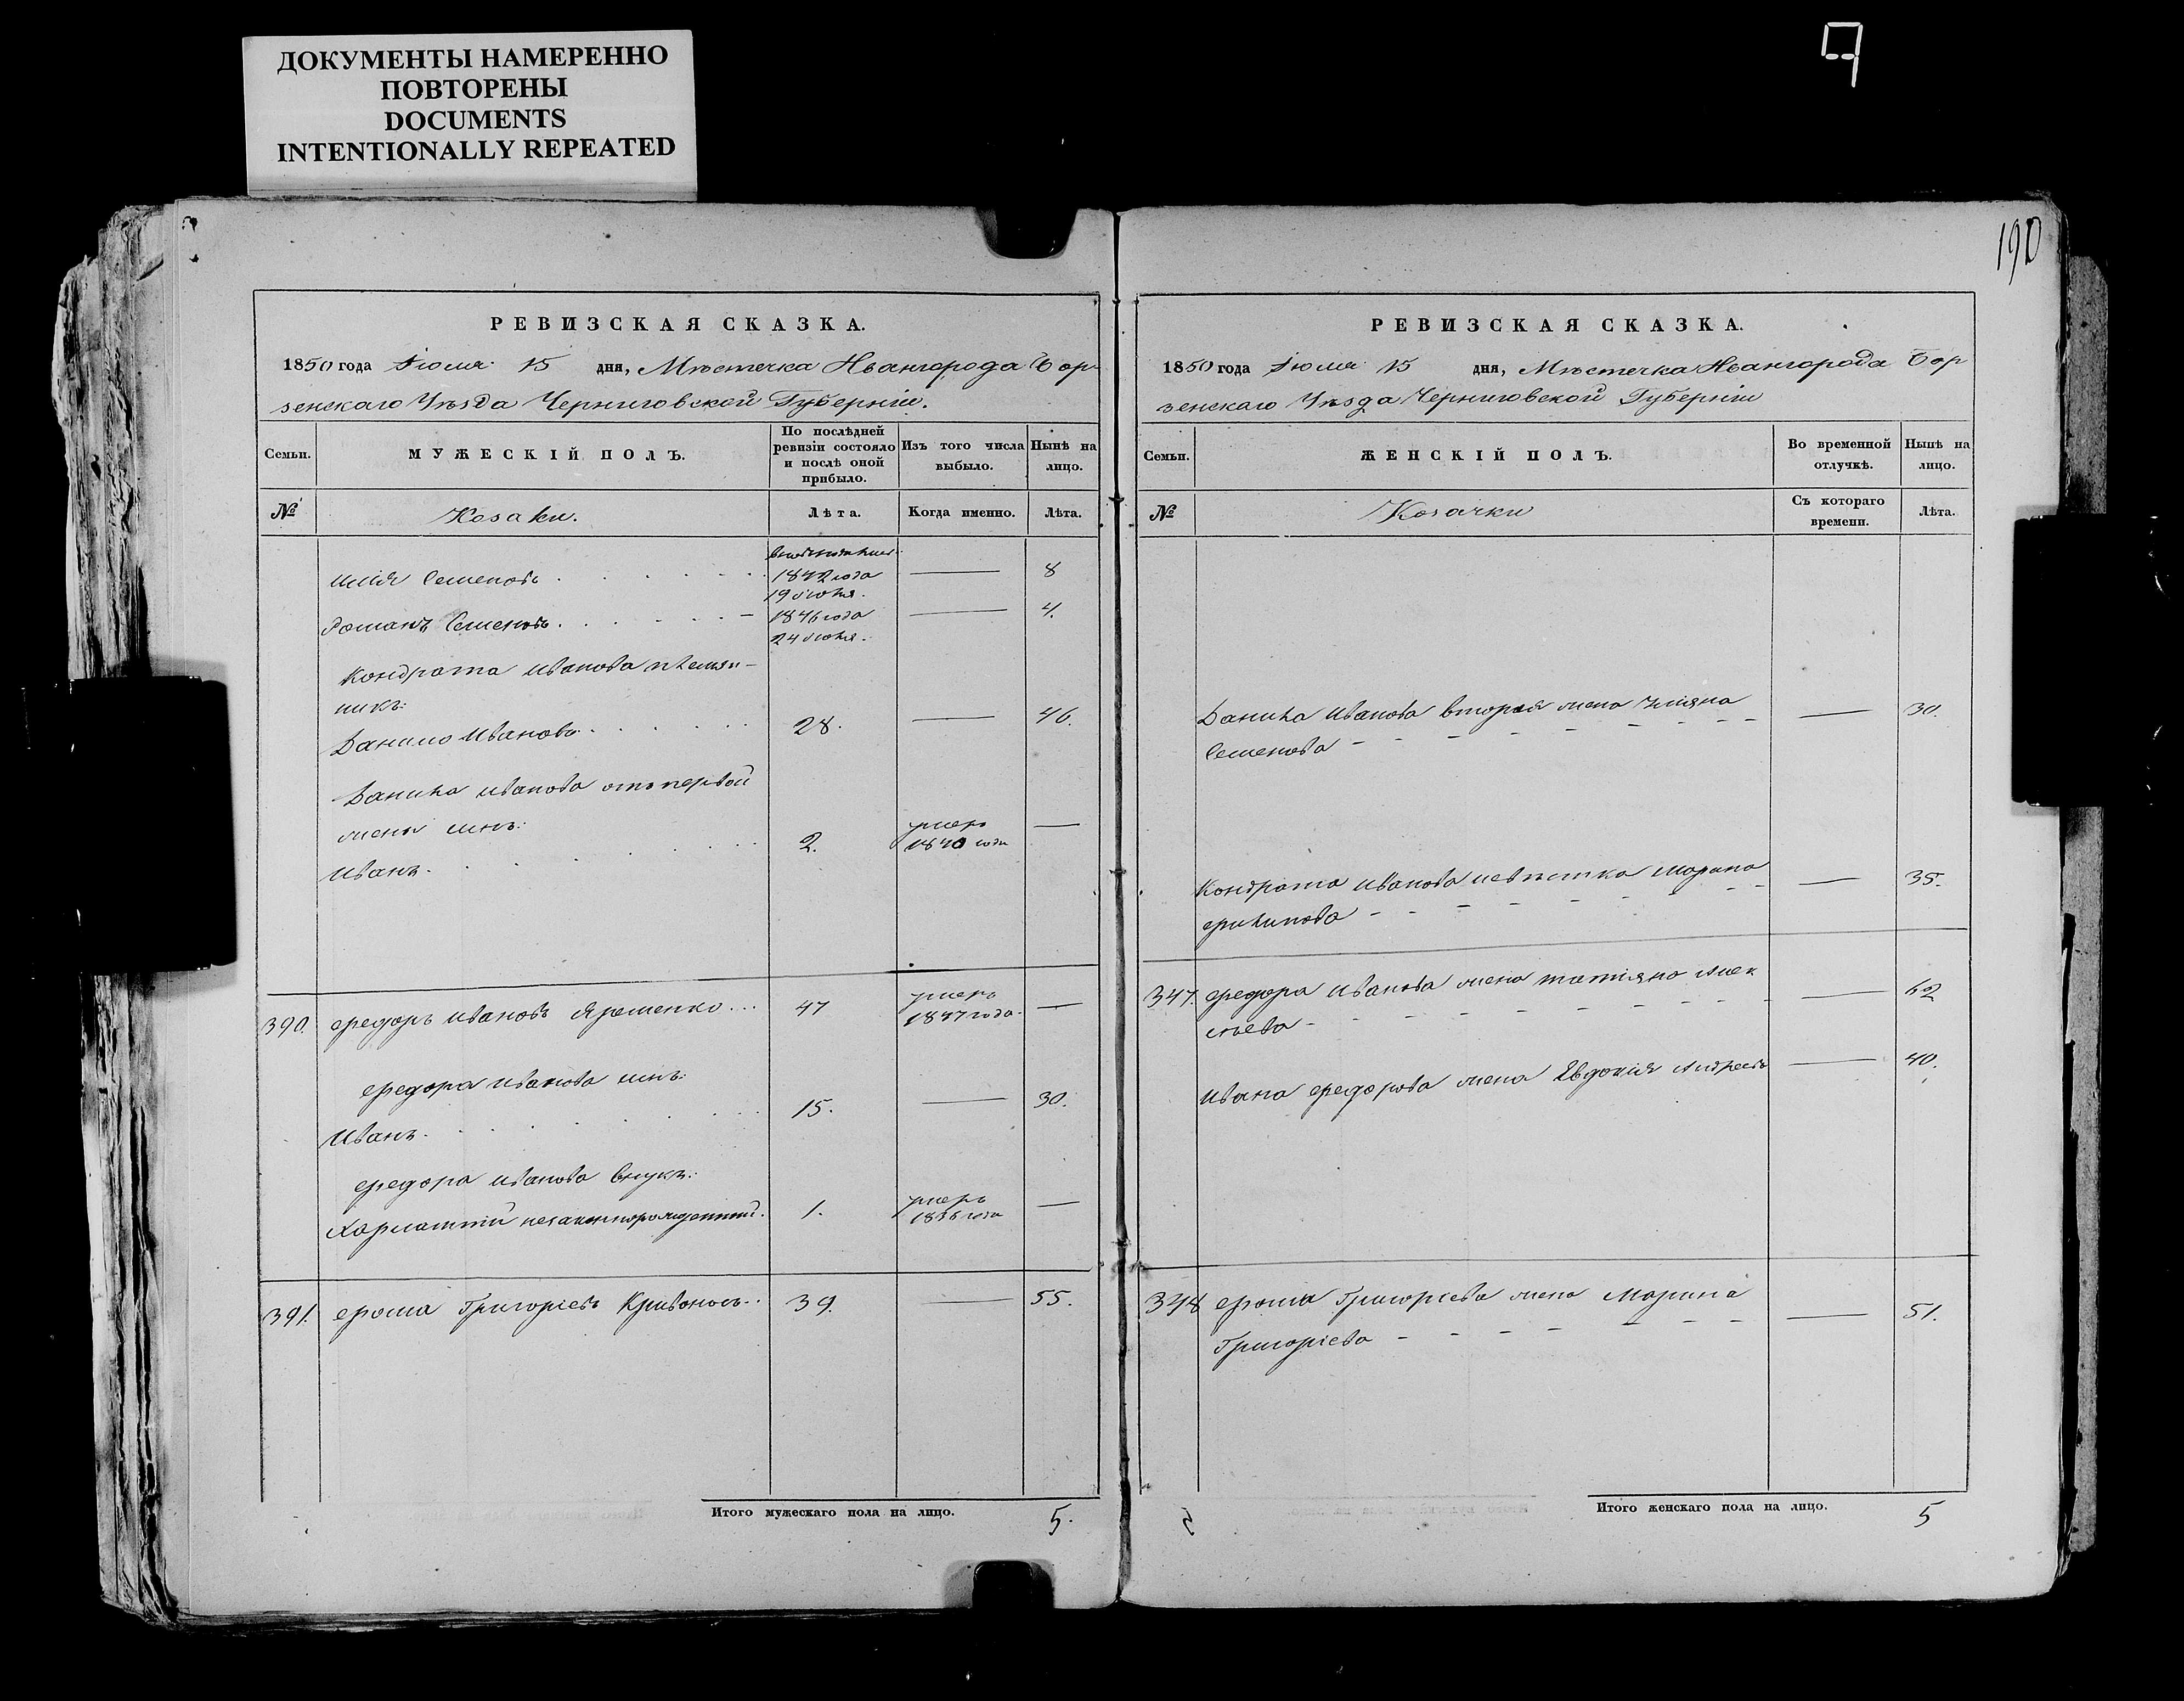 ДОКУМЕНТЫ НАМЕРЕННО
ПОВТОРЕНЫ
DOCUMENTS
INTENTIONALLY REPEATED
190
РЕВИЗСКАЯ СКАЗКА.
1850 года Іюля 15 дня, Мѣстечка Ивангорода Бор
зенскаго Уѣзда Черниговской Губерніи.
Семьи.
МУЖЕСКІЙ ПОЛЪ.
По послѣдней ревизіи состояло и послѣ оной прибыло.
Изъ того числа выбыло.
Нынѣ на лицо.
№
Козаки.
Лѣта.
Когда именно.
Лѣта.
Илія Семеновъ 1842 года 19 июня. — 8
Романъ Семеновъ 1846 года 24 июня. — 4.
Кондрата Иванова племян-
никъ:
Данило Ивановъ 28. — 46.
Данила Иванова отъ первой
жены сынъ:
Иванъ 2. умеръ 1840 года —
390. Федоръ Ивановъ Яременко 47 умеръ 1847 года —
Федора Иванова сынъ:
Иванъ 15. — 30.
Федора Иванова внукъ:
Харлампій незаконнорожденный. 1. умеръ 1836 года —
391. Фома Григоріевъ Кривоносъ 39. — 55.
Итого мужескаго пола на лицо. 5.
РЕВИЗСКАЯ СКАЗКА.
1850 года Іюля 15 дня, Мѣстечка Ивангорода Бор
зенскаго Уѣзда Черниговской Губерніи
Семьи.
ЖЕНСКІЙ ПОЛЪ.
Во временной отлучкѣ.
Нынѣ на лицо.
№
Козачки
Съ котораго времени.
Лѣта.
Данила Иванова вторая жена Уліяна
Семенова — 30.
Кондрата Иванова невѣстка Марина
Филипова — 35.
347. Федора Иванова жена Татіяна Алек
сѣева — 62
Ивана Федорова жена Евдокія Андреев — 40.
348 Фомы Григоріева жена Марина
Григоріева — 51.
Итого женскаго пола на лицо. 5